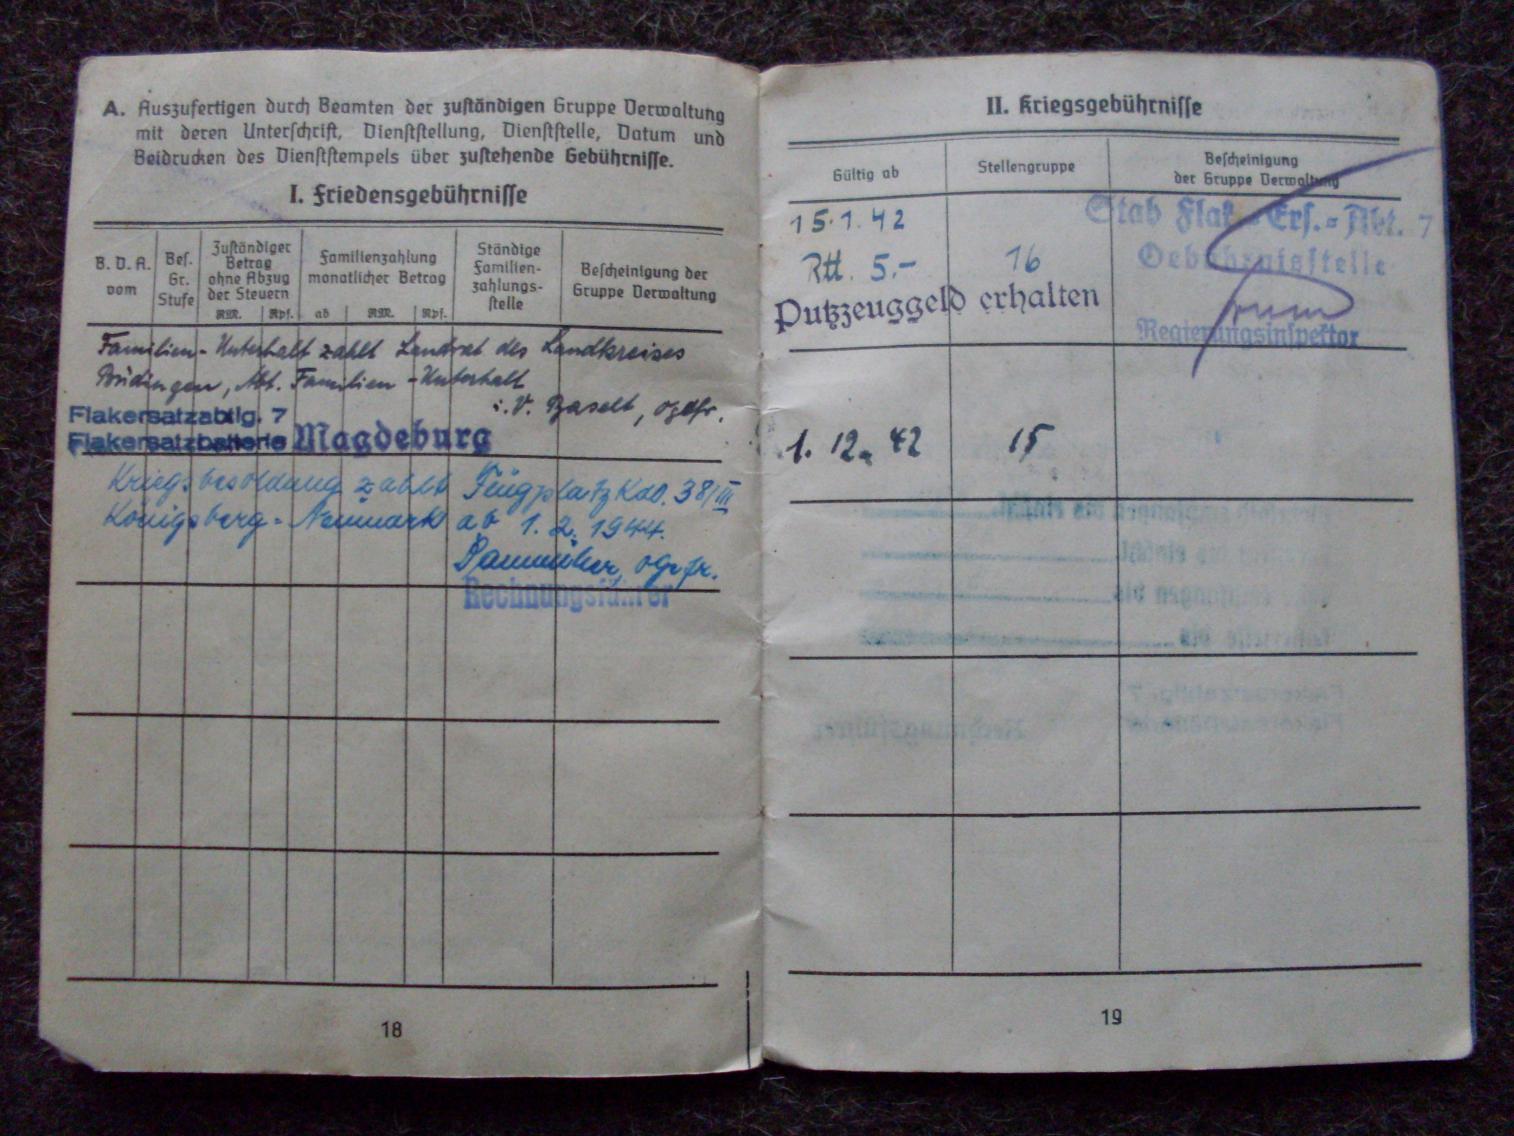 A. Auszufertigen durch Beamten der zuständigen Gruppe Verwaltung
mit deren Unterschrift, Dienststellung, Dienststelle, Datum und
Beidrucken des Dienststempels über zustehende Gebührnisse.
I. Friedensgebührnisse
B. D. A. vom
Bes. Gr. Stufe
Zuständiger Betrag ohne Abzug der Steuern
RM. Rpf.
Familienzahlung monatlicher Betrag
ab RM. Rpf.
Ständige Familien-zahlungs-stelle
Bescheinigung der Gruppe Verwaltung
Familien-Unterhalt zahlt Landrat des Landkreises
Büdingen, Abt. Familien-Unterhalt
i. V. Baselt, Ogefr.
Flakersatzabtlg. 7
Flakersatzbatterie Magdeburg
Kriegsbesoldung zahlt Flugplatz Kdo. 38/III
Königsberg-Neumark ab 1. 2. 1944.
Ogefr.
Rechnungsführer
18
II. Kriegsgebührnisse
Gültig ab
Stellengruppe
Bescheinigung
der Gruppe Verwaltung
15.1.42 Stab Flak-Ers.-Abt. 7
5.- 16 Gebührnisstelle
Putzzeuggeld erhalten
Regierungsinspektor
1. 12. 42 15
19